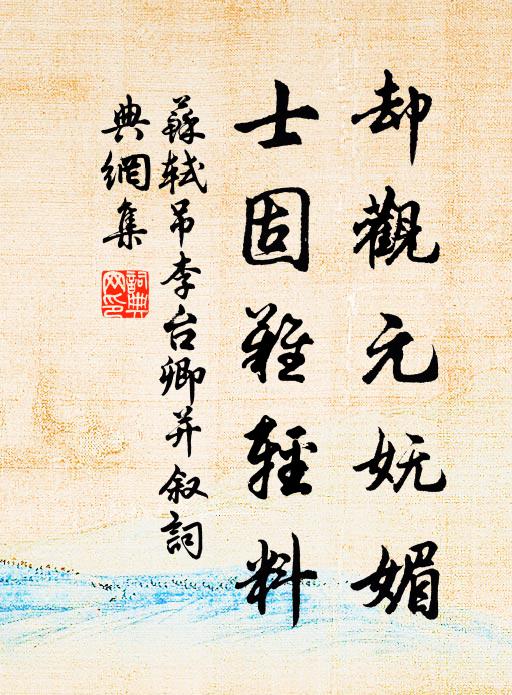 却觀元妩媚
士固難輕料
蘇軾吊李台卿并叙詞
典網集
詞典網印